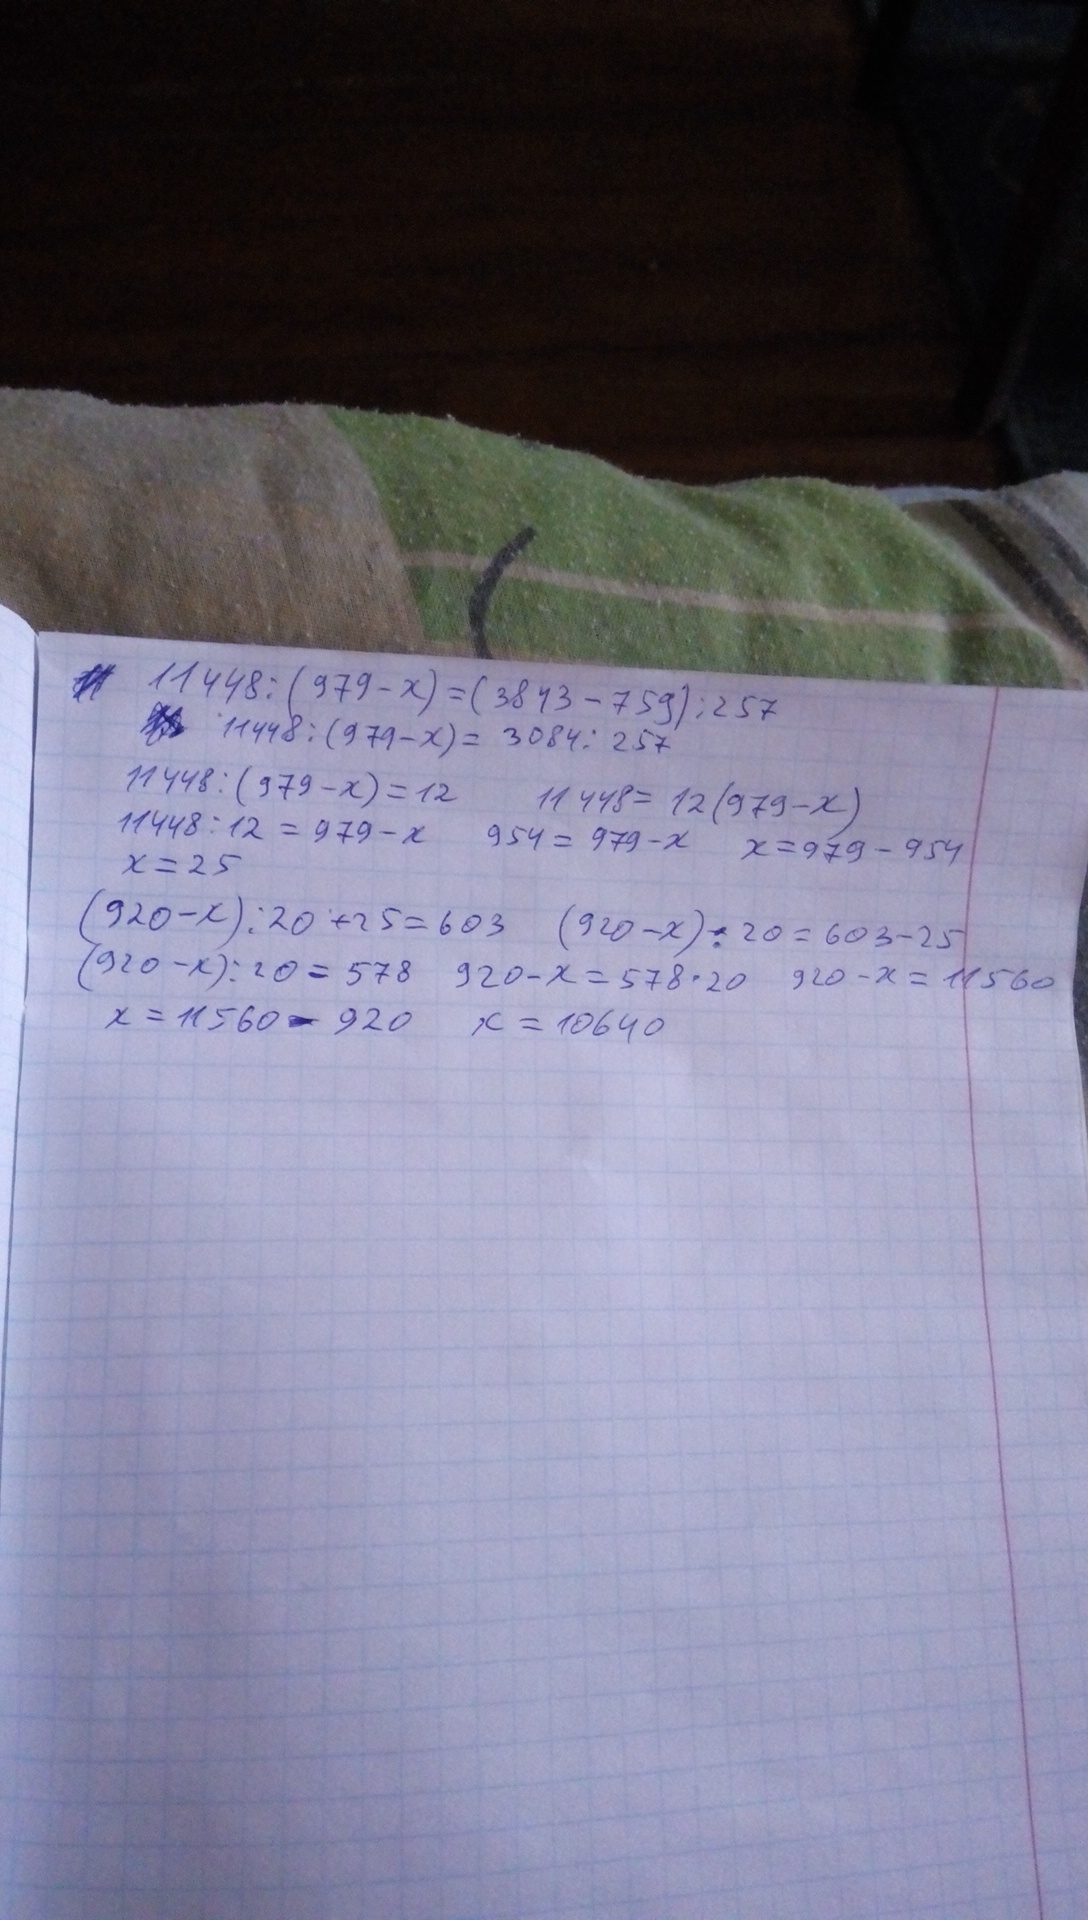 11448:(979-x)=(3843-759):257
11448:(979-x)= 3084: 257
11448:(979-x)=12 11448= 12(979-x)
11448:12=979-x 954=979-x x=979-954
x=25
(920-x):20+25=603 (920-x):20=603-25
(920-x):20=578 920-x=578·20 920-x=11560
x=11560-920 x=10640